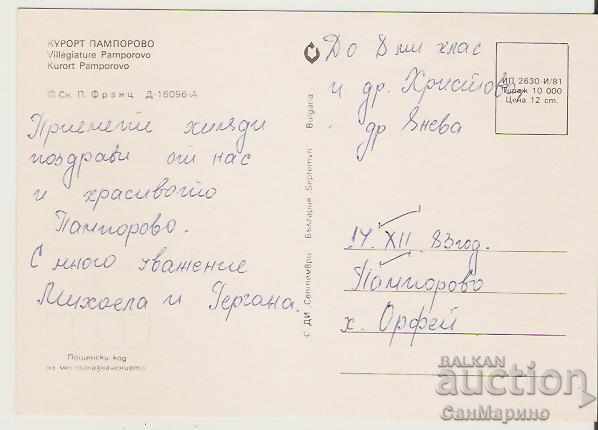 КУРОРТ ПАМПОРОВО
Villégiature Pamporovo
Kurort Pamporovo
© Ск. П. Франц Д-16096-А
Приемете хиляди
поздрави от нас
и красивото
Пампорово.
С много уважение
Михаела и Гергана.
Пощенски код
на местоназначението
© ДИ „Септември“ България „Septemvri“ Bulgaria
До 8ми клас
и др. Христова,
др Янева
ИП 2630-И/81
Тираж 10 000
Цена 12 ст.
14. XII. 83 год.
Пампорово
х. Орфей
BALKAN
auction
СанМарино